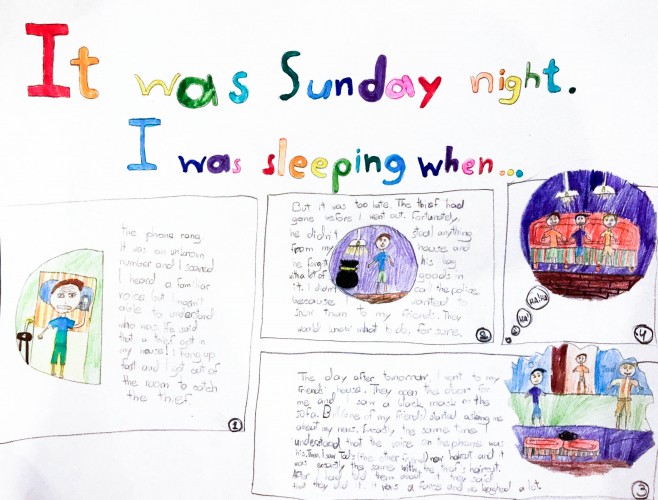 It was Sunday night.
I was sleeping when...
the phone rang.
It was an unknown
number and I
I heard a familiar
voice but I wasn't
able to understand
who was. He said
that a thief got in
my house! I hang up
fast and I got out of
the room to catch
the thief.
1
But it was too late. The thief had
gone before I went out. Fortunately,
he didn't steal anything
from my house and
he forgot his bag
with a lot of goods in
it. I didn't call the police
because I wanted to
show them to my friends. They
would know what to do, for sure.
2
The day after tomorrow, I went to my
friends' house. They open the door for
me and I saw a black mask in the
sofa. Bill (one of my friends) started asking me
about my news. Exactly the same time I
understood that the voice on the phone was
his. Then I saw Tod's (the other friend) new haircut and it
was exactly the same with the thief's haircut.
After I had told them about it they said
that they did it. It was a farce and we laughed a lot.
3
HA!HA!
HA!
4